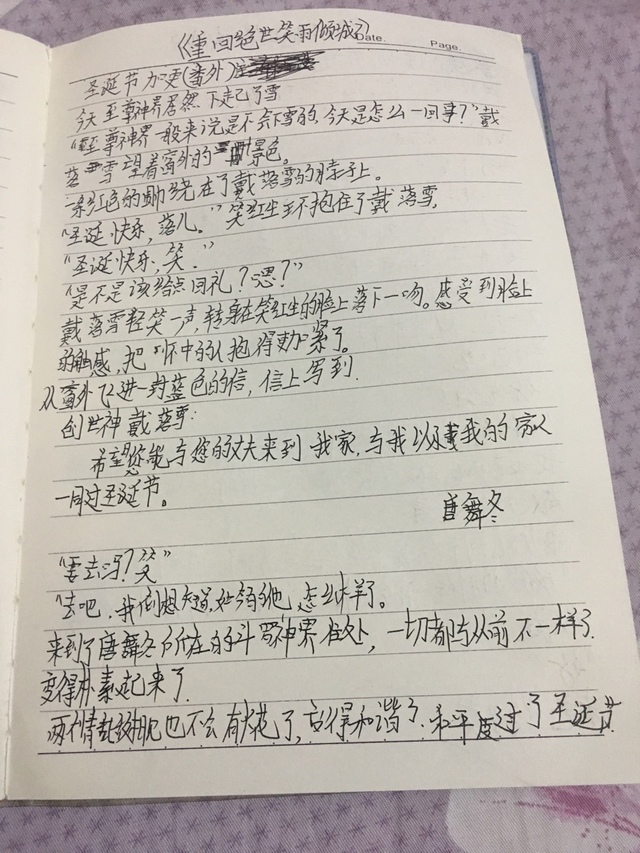 《重回绝世笑雨倾城》
Date. Page.
圣诞节加更(番外)
今天至尊神界居然下起了雪
“至尊神界一般来说是不会下雪的,今天是怎么一回事?”戴
落雪望着窗外的景色。
一条红色的 绕在了戴落雪的脖子上。
“圣诞快乐,落儿。”笑红尘环抱住了戴落雪,
“圣诞快乐,笑.”
“是不是该给点回礼?嗯?”
戴落雪轻笑一声,转身在笑红尘的脸上落下一吻。感受到脸上
的触感,把怀中的人抱得更加紧了。
从窗外飞进一封蓝色的信,信上写到.
创世神戴落雪:
希望您能与您的丈夫来到我家,与我以及我的家人
一同过圣诞节。
唐舞冬
“要去吗?笑”
“去吧,我倒想知道,如今的他怎么样了。
来到了唐舞冬所在的斗罗神界住处,一切都与从前不一样了.
变得朴素起来了.
两个情敌 也不会有火花了,变得和谐了.和平度过了圣诞节